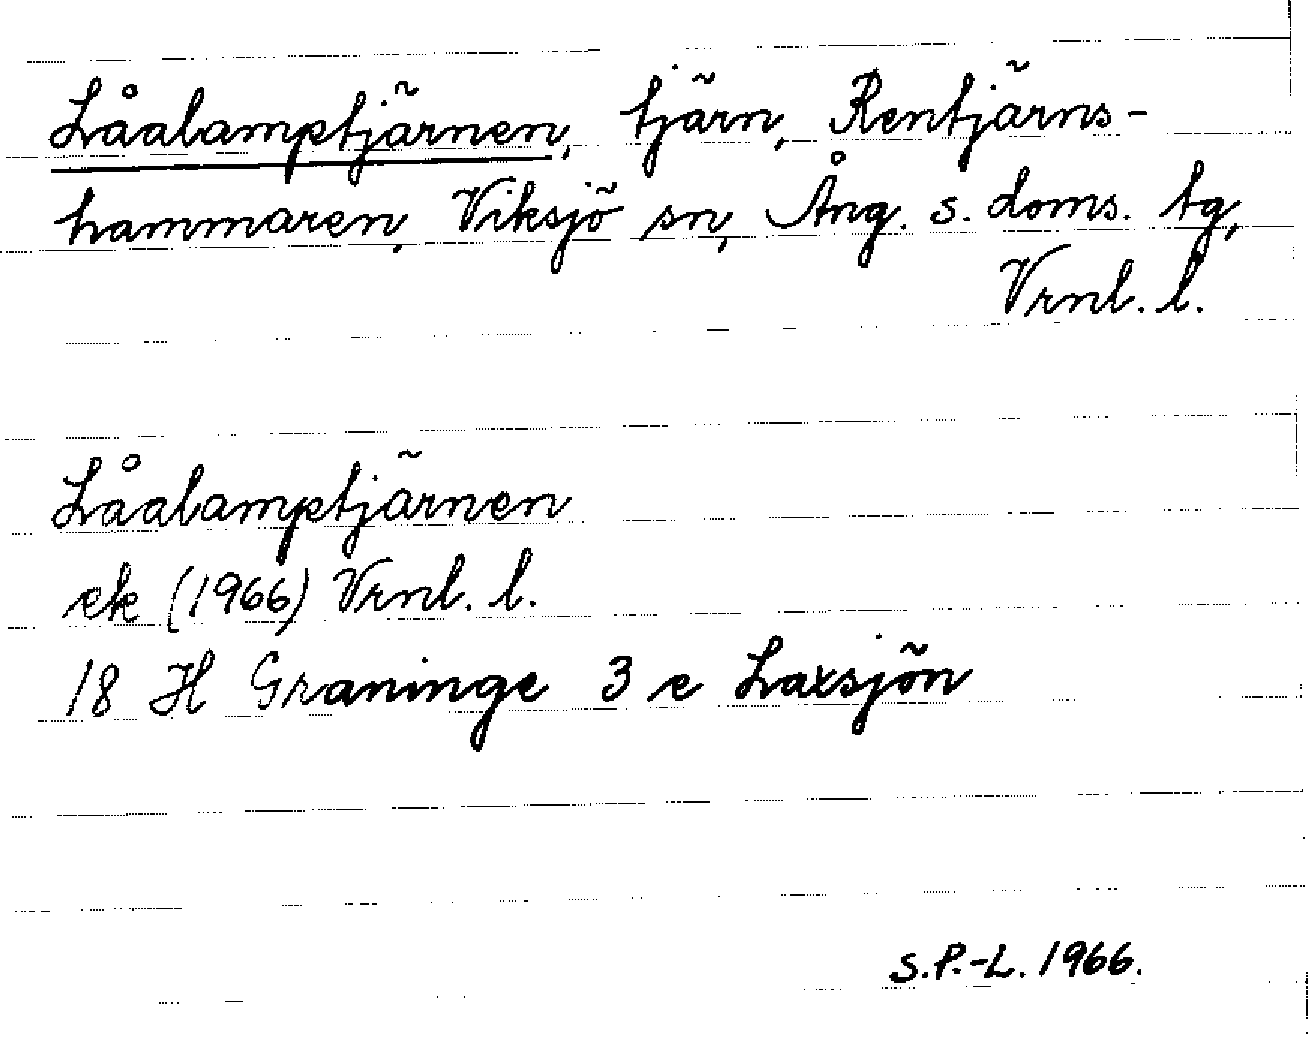 Låalamptjärnen, tjärn, Rentjärns-
hammaren, Viksjö sn, Ång. s. doms. tg,
Vrnl. l.
Låalamptjärnen
ek (1966) Vrnl. l.
18 H Graninge 3 e Laxsjön
S.P.-L. 1966.